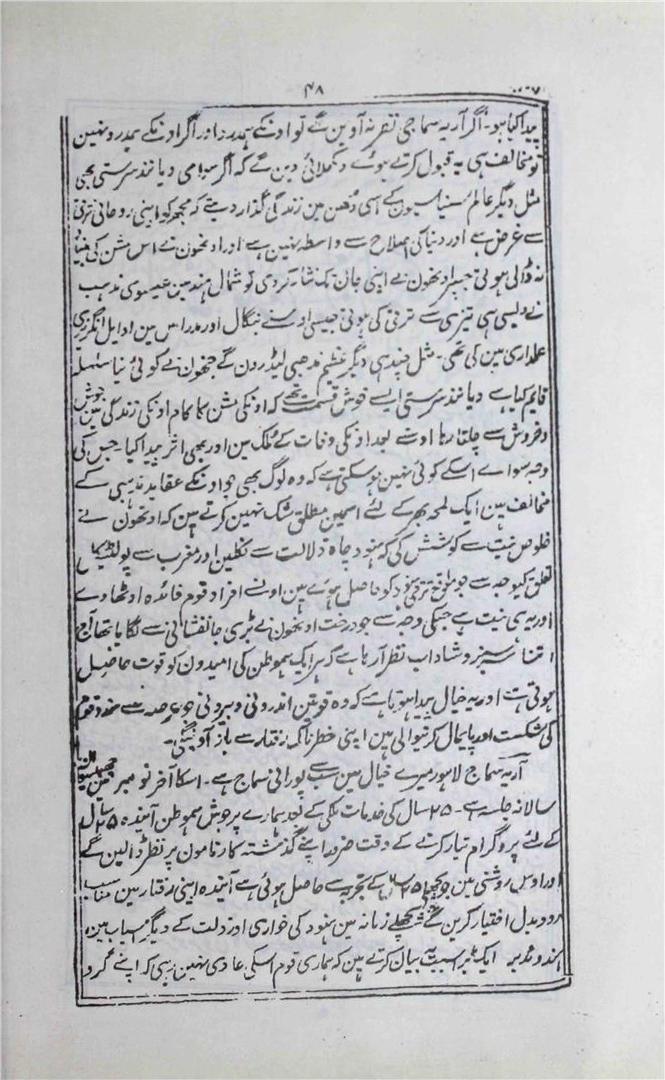 ۴۸
پیدا کیا ہو۔ اگر آریہ سماجی نظر نہ آوین گے تو اونکے ہمدرد اور اگر اونکے ہمدرد نہین
تو مخالف ہی یہ قبول کرتے ہوئے دکھلائی دین گے کہ اگر سوامی دیانند سرستی بھی
مثل دیگر عالم سنیاسیون کے اسی دُھن مین زندگی گذار دیتے کہ مجھکو اپنی روحانی ترقی
سے غرض ہے اور دنیا کی اصلاح سے واسطہ نہین ہے اور اونھون نے اس مشن کی بنیاد
نہ ڈالی ہوتی جسپر اونھون نے اپنی جان تک نثار کر دی تو شمال ہند مین عیسوی مذہب
نے ویسی ہی تیزی سے ترقی کی ہوتی جیسی اوسنے بنگال اور مدراس مین اوایل انگریزی
عملداری مین کی تھی۔ مثل چند ہی دیگر عظیم مذہبی لیڈرون کے جنھون نے کوئی نیا سلسلہ
قایم کیا ہے دیانند سرستی ایسے خوش قسمت تھے کہ اونکی مشن کا کام اونکی زندگی مین جوش
و خروش سے چلتا رہا اوسنے بعد اونکی وفات کے مُلک مین اور بھی اثر پیدا کیا۔ جس کی
وجہ سواے اسکے کوئی نہین ہو سکتی ہے کہ وہ لوگ بھی جو اونکے عقاید مذہبی کے
مخالف ہین ایک لمحہ بھر کے لئے اسمین مطلق شک نہین کرتے ہین کہ اونھون نے
خلوص نیت سے کوشش کی کہ ہنود چاہ ذلالت سے نکلین اور مغرب سے پولٹیکل
تعلق کیوجہ سے جو مواقع ترقی ہنود کو حاصل ہوئے ہین اونسے افراد قوم فائدہ اوٹھاوے
اور یہ ہی نیت ہے جسکی وجہ سے جو درخت اونھون نے بڑی جانفشانی سے لگایا تھا آج
اتنا سرسبز و شاداب نظر آ رہا ہے کہ ہر ایک ہموطن کی امیدون کو قوت حاصل
ہوتی ہے اور یہ خیال پیدا ہوتا ہے کہ وہ قوتین اندرونی و بیرونی جو عرصہ سے ہندو قوم
کی شکست اور پایمال کرنیوالی ہین اپنی خطرناک رفتار سے باز آوینگی۔
آریہ سماج لاہور میرے خیال مین سب سے پورانی سماج ہے۔ اسکا آخر نومبر مین
سالانہ جلسہ ہے۔ ۲۵ سال کی خدمات ملکی کے بعد ہمارے پرجوش ہموطن آیندہ ۲۵ سال
کے لئے پروگرام تیار کرنے کے وقت ضرور اپنے گذشتہ کارنامون پر نظر ڈالین گے
اور اوس روشنی مین جو پچھلی ۲۵ سال کے تجربہ سے حاصل ہوئی ہے آیندہ اپنی رفتار مین مناسب
ردوبدل اختیار کرین گے پچھلے زمانہ مین ہنود کی خواری اور ذلت کے دیگر اسباب مین
ہندو مدبر ایک بڑا سبب یہ بیان کرتے ہین کہ ہماری قوم اسکی عادی نہین رہی کہ اپنے گرد